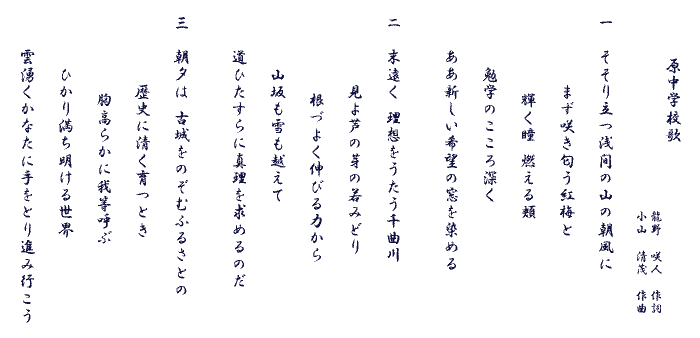 原中学校歌
龍野 咲人 作詞
小山 清茂 作曲
一 そそり立つ浅間の山の朝風に
まず咲き匂う紅梅と
輝く瞳 燃える頬
勉学のこころ深く
ああ新しい希望の窓を染める
二 末遠く 理想をうたう千曲川
見よ芦の芽の若みどり
根づよく伸びる力から
山坂も雪も越えて
道ひたすらに真理を求めるのだ
三 朝夕は 古城をのぞむふるさとの
歴史に清く育つとき
胸高らかに我等呼ぶ
ひかり満ち明ける世界
雲湧くかなたに手をとり進み行こう